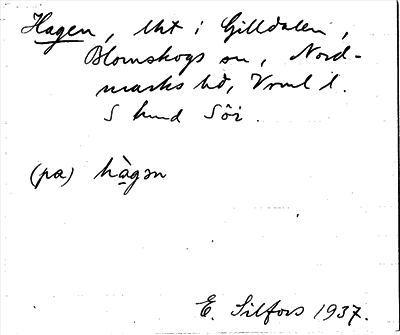 Hagen, lht i Gilldalen,
Blomskogs sn, Nord-
marks hd, Vrml l.
S hund Sör.
(pa) hàgən
E. Silfors 1937.